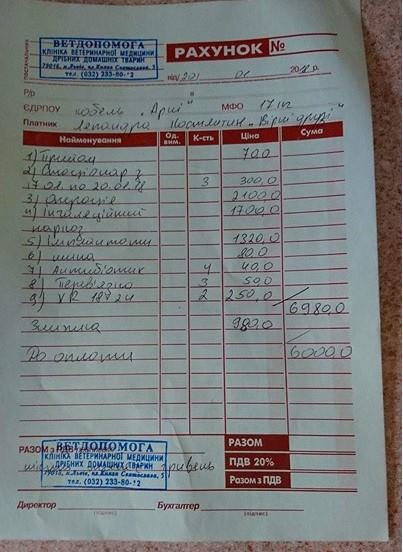 ВЕТДОПОМОГА
КЛІНІКА ВЕТЕРИНАРНОЇ МЕДИЦИНИ
ДРІБНИХ ДОМАШНІХ ТВАРИН
79016, м.Львів, пл.Князя Святослава, 5
тел. (032) 233-80-12
ПОСТАЧАЛЬНИК
РАХУНОК №
від 20/ 01 2018 р.
Р/р в
ЄДРПОУ кобель "Арчі" МФО 17 кг
Платник "Вірні друзі"
Найменування Од. вим. К-сть Ціна Сума
1) Прийом 70,0
2) Стаціонар з
17.01. по 20.01.18 3 300,0
3) Операція 2100,0
4) Інгаляційний 1700,0
наркоз
5) Імплантати 1320,0
6) шина 80,0
7) Антибіотик 4 40,0
8) Перев'язка 3 50,0
9) VR 18х24 2 250,0
6980,0
Знижка 980,0
До оплати 6000,0
РАЗОМ з ПДВ
ВЕТДОПОМОГА
КЛІНІКА ВЕТЕРИНАРНОЇ МЕДИЦИНИ
ДРІБНИХ ДОМАШНІХ ТВАРИН
79016, м.Львів, пл.Князя Святослава, 5
тел. (032) 233-80-12
гривень
РАЗОМ
ПДВ 20%
Разом з ПДВ
Директор Бухгалтер
(підпис) (підпис)